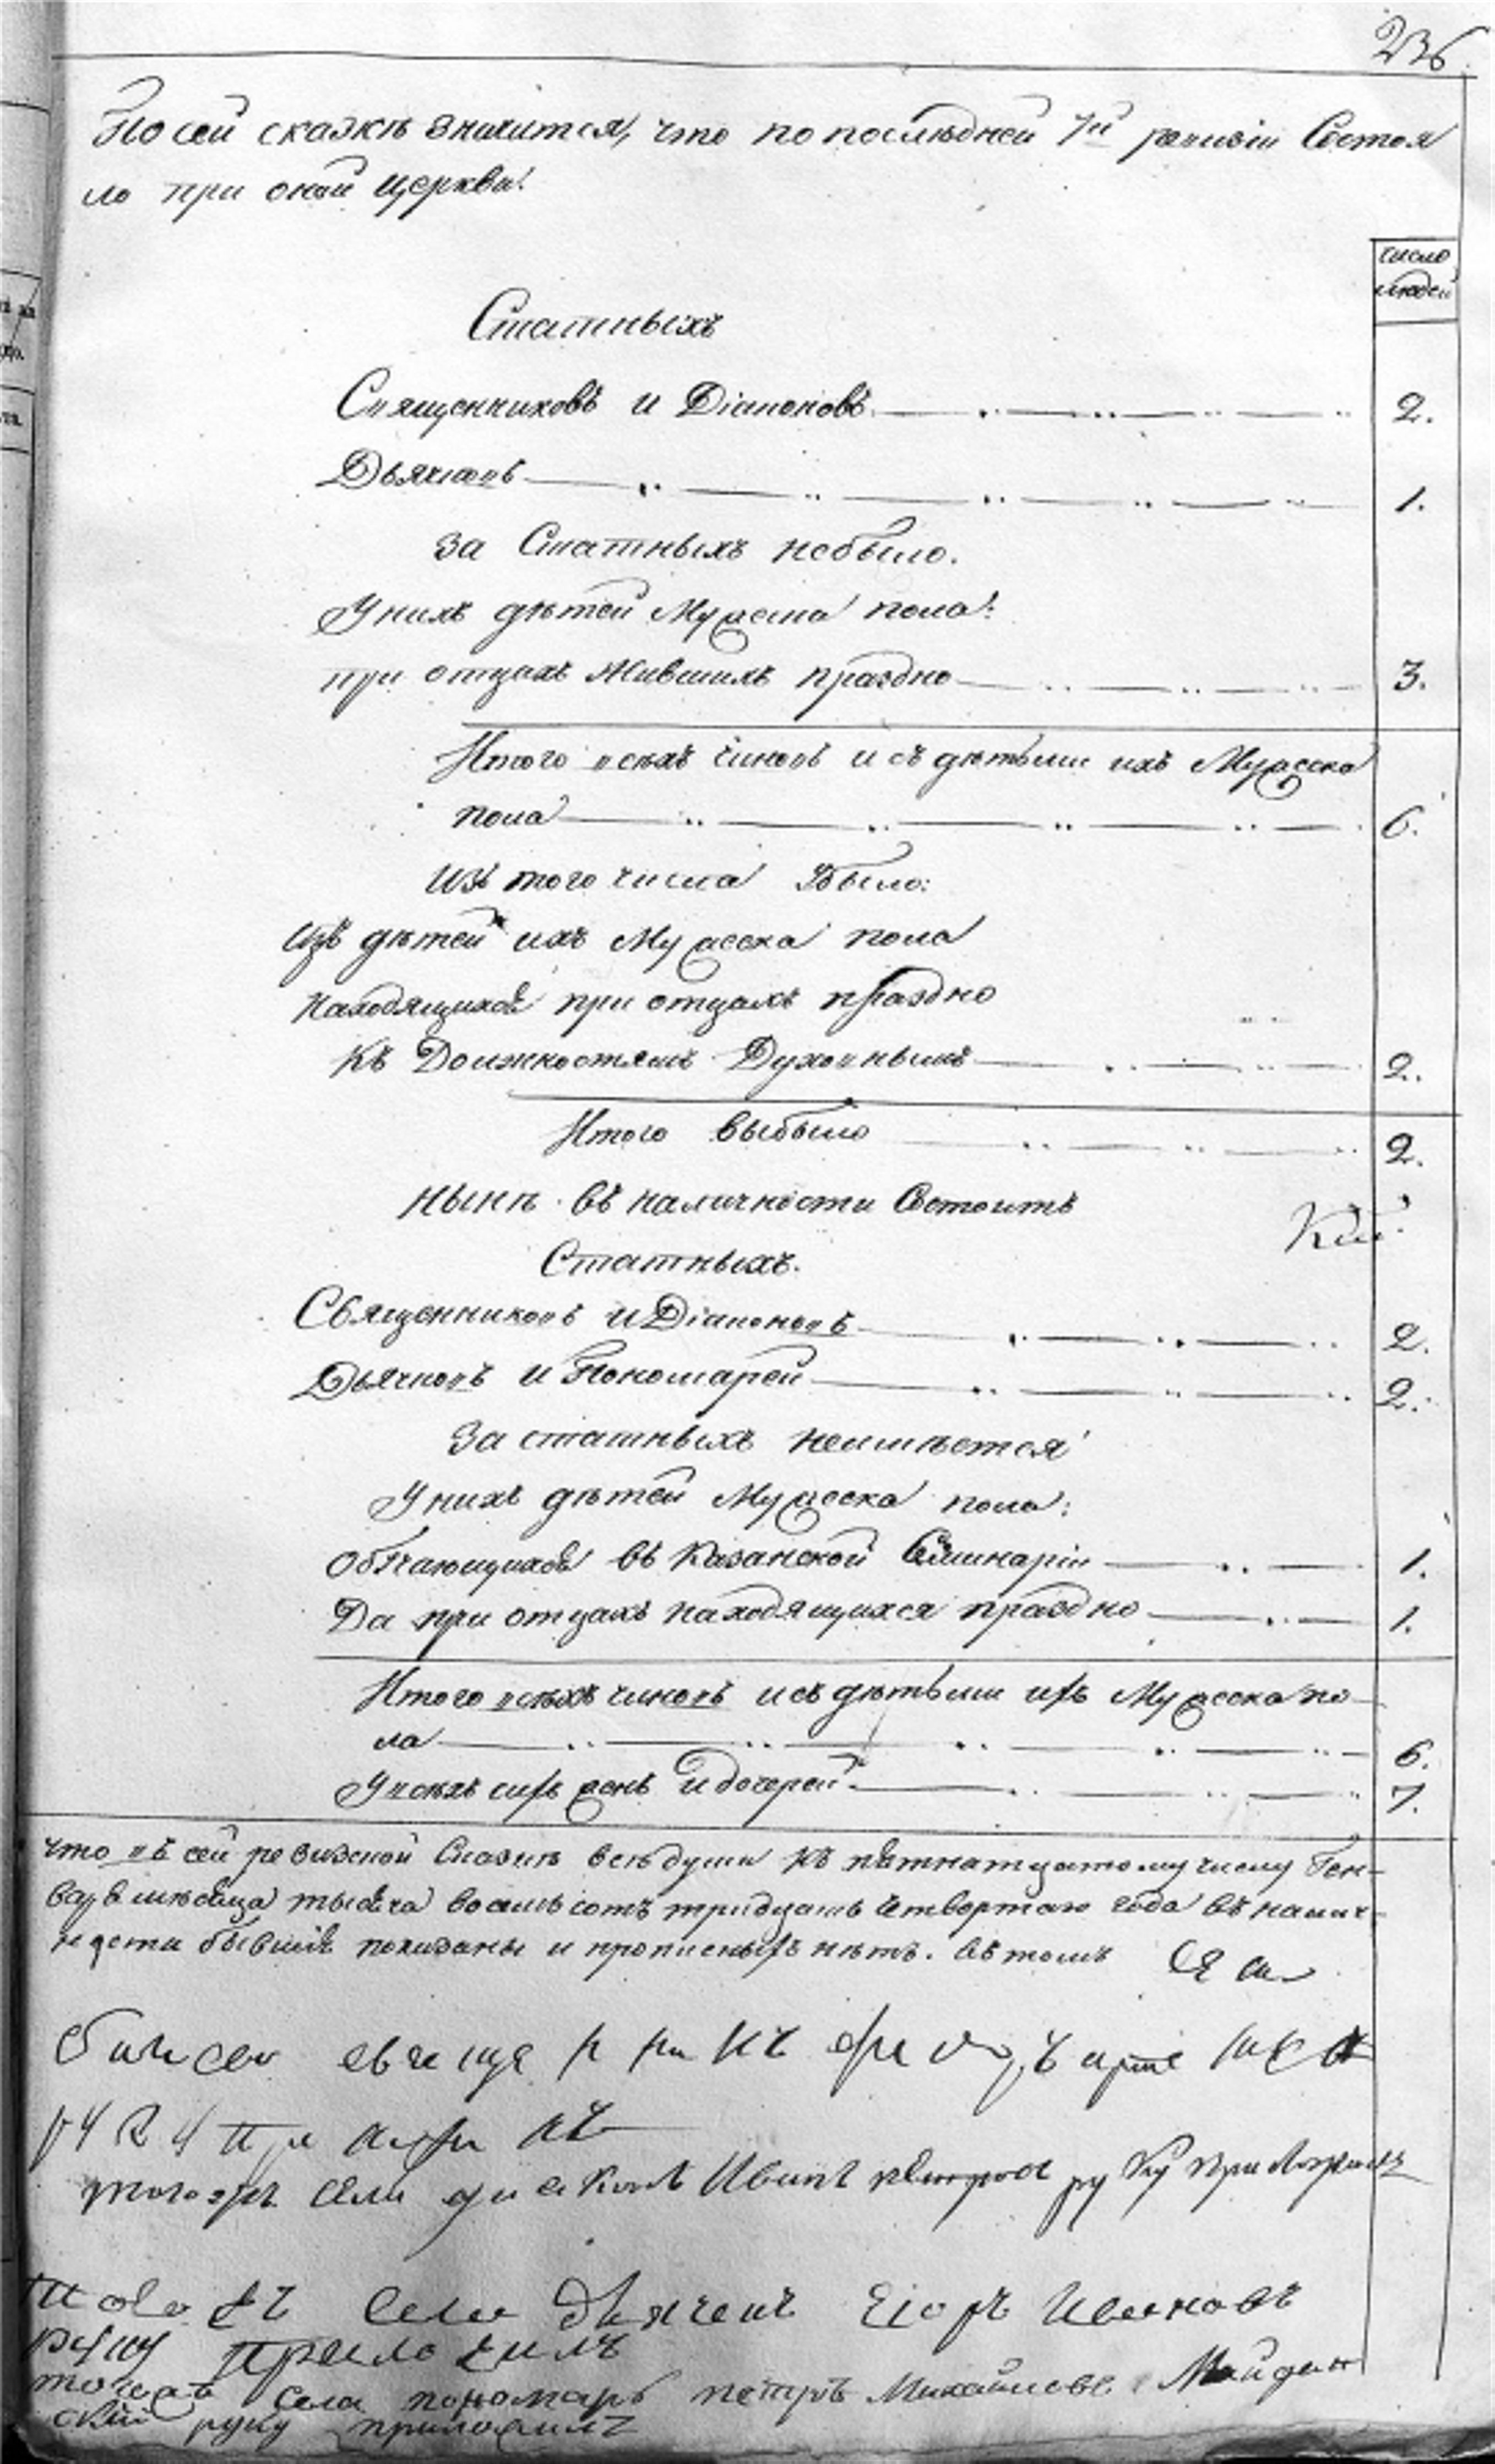 236.
По сей сказкѣ значится, что по последней 7й ревизіи Состоя
ло при оной церкви:
число
людей
Статныхъ
Священниковъ и Діаконовъ 2.
Дьячковъ 1.
За Статныхъ небыло.
У нихъ дѣтей Мужеска пола:
при отцахъ жившихъ праздно 3.
Итого всѣхъ чиновъ и съ дѣтьми ихъ Мужеска
пола 6.
Изъ того числа Убыло:
Изъ дѣтей ихъ Мужеска пола
находящихся при отцахъ праздно
къ Должностямъ Духовнымъ 2.
Итого выбыло 2.
Нынѣ въ наличности Состоитъ
Статныхъ.
Священниковъ и Діаконовъ 2.
Дьячковъ и Пономарей 2.
За статныхъ неимѣется
У нихъ дѣтей Мужеска пола:
Обучающихся въ Казанской Семинаріи 1.
Да при отцахъ находящихся праздно 1.
Итого всѣхъ чиновъ и съ дѣтьми ихъ Мужеска по-
ла 6.
У всѣхъ сихъ женъ и дочерей 7.
что въ сей ревизской Сказкѣ всѣ души къ пятнатцатому числу Ген-
варя мѣсяца тысяча восемьсотъ тридцать четвертаго года въ налич-
ности бывшія показаны и прописныхъ нѣтъ. Въ томъ
руку приложилъ
тогожъ села диаконъ Иванъ Петровъ руку приложилъ
тогожъ села дьячекъ Егоръ Ивановъ
руку приложилъ
тогожъ села пономарь Петръ Михайловъ Майдан
скій руку приложилъ